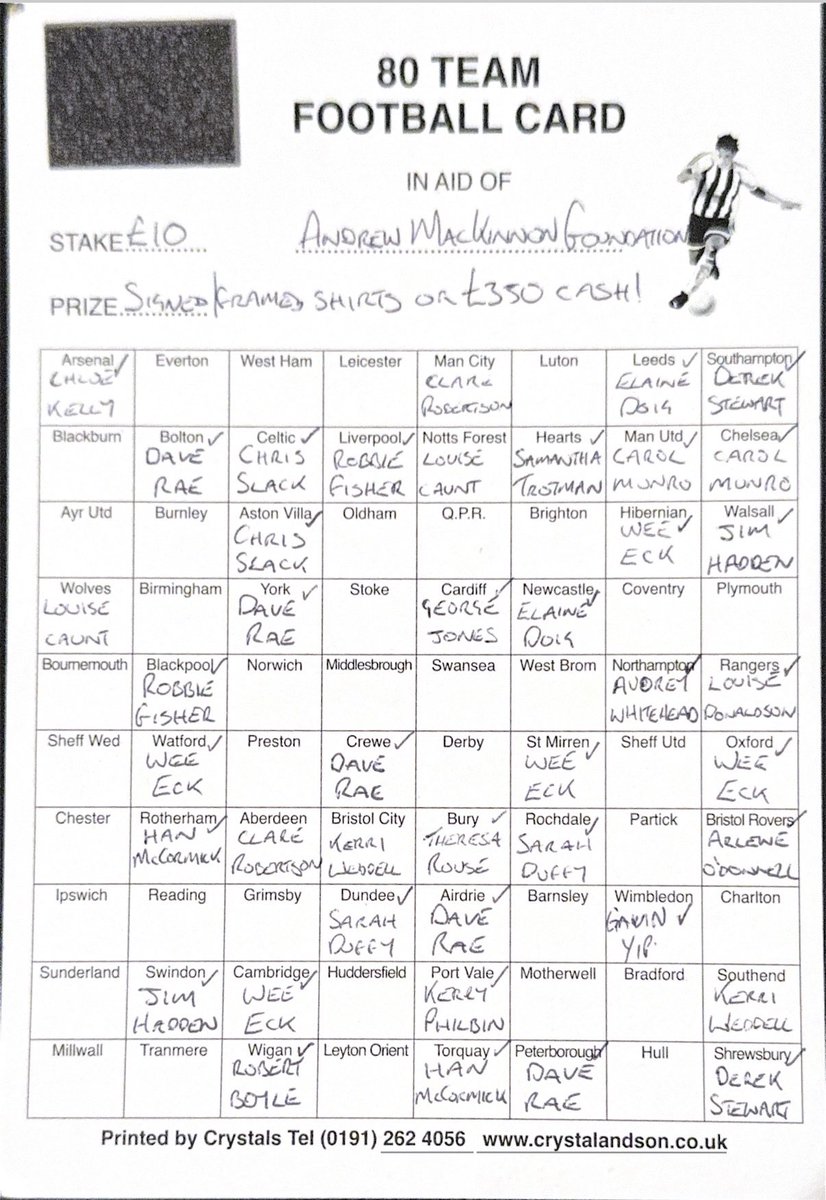 80 TEAM
FOOTBALL CARD
IN AID OF
STAKE £10 ANDREW MACKINNON FOUNDATION
PRIZE SIGNED/FRAMED SHIRTS OR £350 CASH!
Arsenal ✓ Everton West Ham Leicester Man City Luton Leeds ✓ Southampton ✓
CHLOE CLARE ELAINE DEREK
KELLY ROBERTSON DOIG STEWART
Blackburn Bolton ✓ Celtic ✓ Liverpool ✓ Notts Forest Hearts ✓ Man Utd ✓ Chelsea ✓
DAVE CHRIS ROBBIE LOUISE SAMANTHA CAROL CAROL
RAE SLACK FISHER CAUNT TROTMAN MUNRO MUNRO
Ayr Utd Burnley Aston Villa ✓ Oldham Q.P.R. Brighton Hibernian Walsall ✓
CHRIS WEE ✓ JIM
SLACK ECK HADDEN
Wolves Birmingham York ✓ Stoke Cardiff ✓ Newcastle ✓ Coventry Plymouth
LOUISE DAVE GEORGE ELAINE
CAUNT RAE JONES DOIG
Bournemouth Blackpool ✓ Norwich Middlesbrough Swansea West Brom Northampton ✓ Rangers ✓
ROBBIE AUDREY LOUISE
FISHER WHITEHEAD DONALDSON
Sheff Wed Watford ✓ Preston Crewe ✓ Derby St Mirren ✓ Sheff Utd Oxford ✓
WEE DAVE WEE WEE
ECK RAE ECK ECK
Chester Rotherham ✓ Aberdeen Bristol City Bury ✓ Rochdale ✓ Partick Bristol Rovers ✓
HAN CLARE KERRI THERESA SARAH ARLENE
McCORMICK ROBERTSON WEDDELL ROUSE DUFFY O'DONNELL
Ipswich Reading Grimsby Dundee ✓ Airdrie ✓ Barnsley Wimbledon Charlton
SARAH DAVE GAVIN ✓
DUFFY RAE YIP
Sunderland Swindon ✓ Cambridge ✓ Huddersfield Port Vale ✓ Motherwell Bradford Southend
JIM WEE KERRY KERRI
HADDEN ECK PHILBIN WEDDELL
Millwall Tranmere Wigan ✓ Leyton Orient Torquay ✓ Peterborough ✓ Hull Shrewsbury ✓
ROBERT HAN DAVE DEREK
BOYLE McCORMICK RAE STEWART
Printed by Crystals Tel (0191) 262 4056 www.crystalandson.co.uk